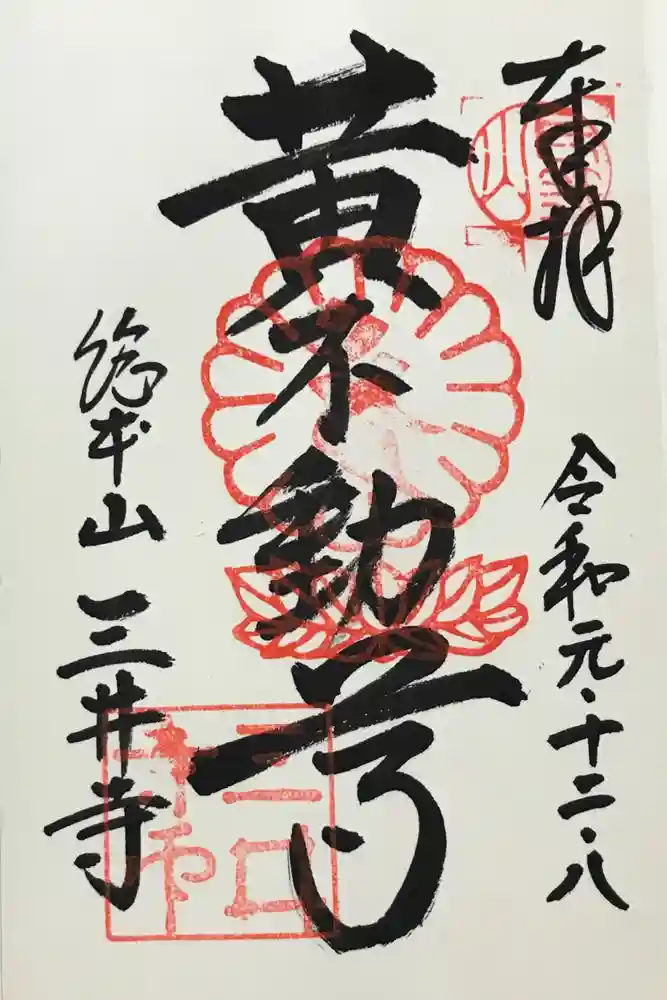 奉拝
令和元・十二・八
黄不動尊
総本山 三井寺